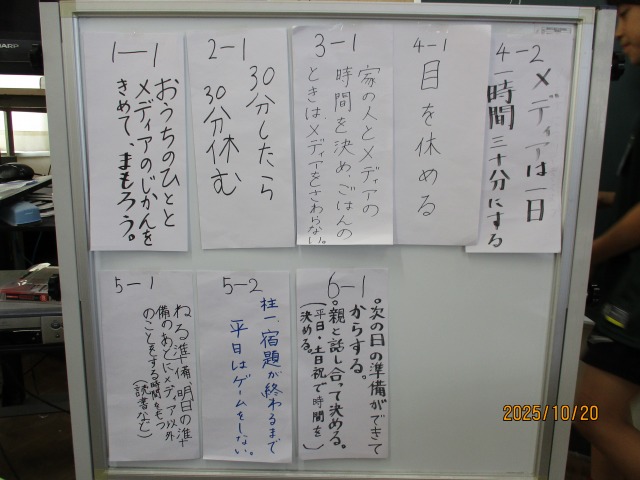 SHARP
1-1
おうちのひとと
メディアのじかんを
きめて、まもろう。
2-1
30分したら
30分休む
3-1
家の人とメディアの
時間を決め、ごはんの
ときは、メディアをさわらない。
4-1
目を休める
4-2
メディアは一日
一時間三十分にする
5-1
ねる準備、明日の準
備のあとにメディア以外
のことをする時間をもつ
(読書など)
5-2
柱一、宿題が終わるまで
平日はゲームをしない。
6-1
。次の日の準備ができて
からする。
。親と話し合って決める。
(平日・土日祝で時間を
決める。)
2025/10/20